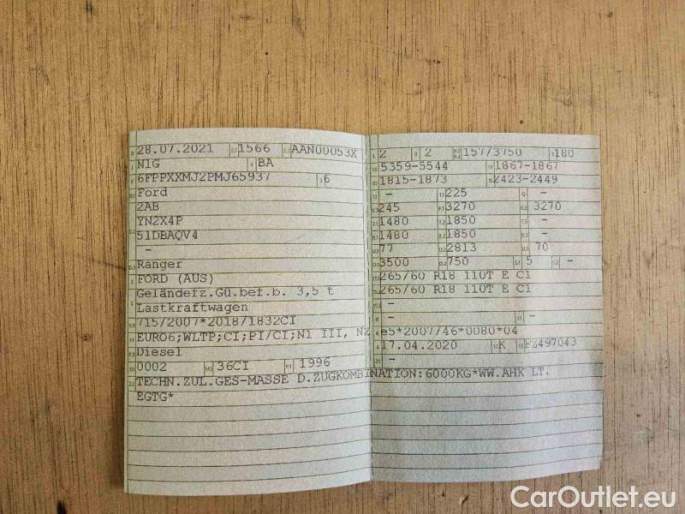 28.07.2021 1566 AAN00053X
N1G BA
6FPPXXMJ2PMJ65937 6
Ford
2AB
YN2X4P
51DBAQV4
-
Ranger
FORD (AUS)
Geländefz.Gü.bef.b. 3,5 t
Lastkraftwagen
715/2007*2018/1832CI
EURO6;WLTP;CI;PI/CI;N1 III, N2
Diesel
0002 36CI 1996
TECHN.ZUL.GES-MASSE D.ZUGKOMBINATION:6000KG*WW.AHK LT.
EGTG*
2 2 157/3750 180
5359-5544 1867-1867
1815-1873 2423-2449
- 225 -
245 3270 3270
1480 1850 -
1480 1850 -
77 2813 70
3500 750 5 -
265/60 R18 110T E C1
265/60 R18 110T E C1
- -
-
e5*2007/46*0080*04
17.04.2020 K
-
CarOutlet.eu